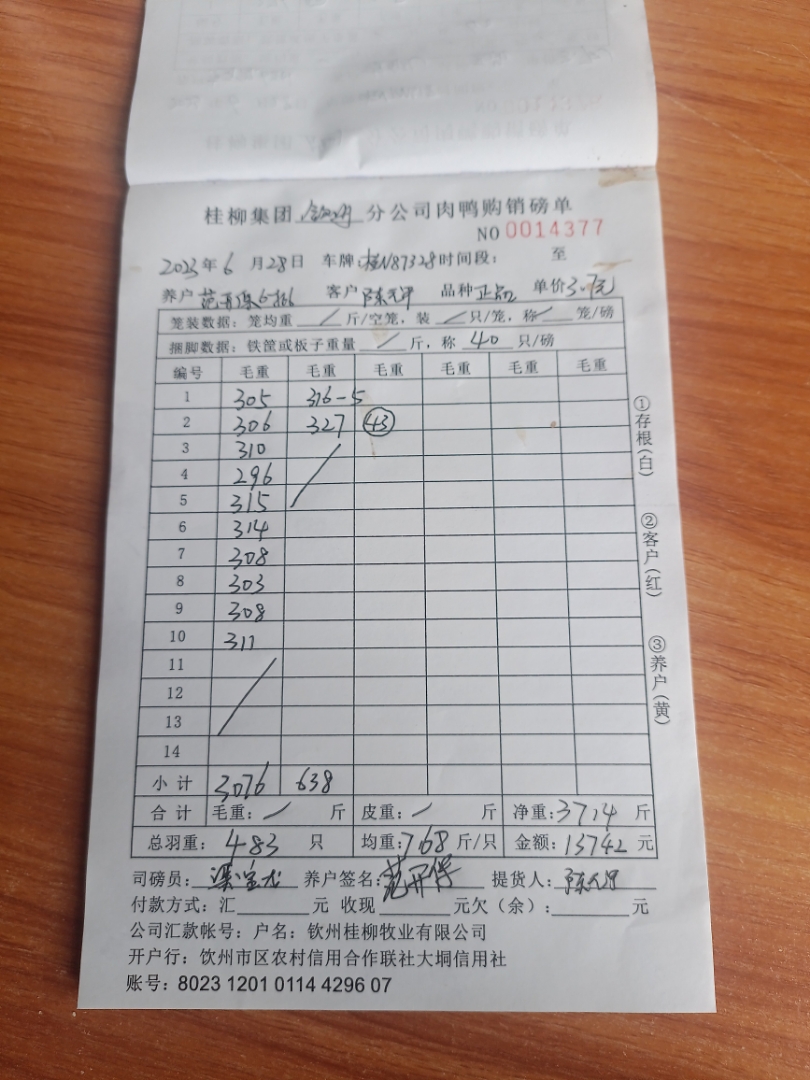 桂柳集团 钦州 分公司肉鸭购销磅单
NO 0014377
2023年6月28日 车牌:桂N87328 时间段: 至
养户 范开保6-366 客户 陈 品种 正品 单价 3.7元
笼装数据: 笼均重 / 斤/空笼, 装 / 只/笼, 称 / 笼/磅
捆脚数据: 铁筐或板子重量 / 斤, 称 40 只/磅
编号 毛重 毛重 毛重 毛重 毛重 毛重
1 305 316-5
2 306 327 43
3 310 /
4 296
5 315
6 314
7 308
8 303
9 308
10 311
11 /
12
13
14
小计 3076 638
合计 毛重: / 斤 皮重: / 斤 净重: 3714 斤
总羽重: 483 只 均重: 7.68 斤/只 金额: 13742 元
司磅员: 养户签名: 范开保 提货人: 陈
付款方式: 汇 元 收现 元欠(余): 元
公司汇款帐号: 户名: 钦州桂柳牧业有限公司
开户行: 钦州市区农村信用合作联社大垌信用社
账号: 8023 1201 0114 4296 07
①存根(白)
②客户(红)
③养户(黄)